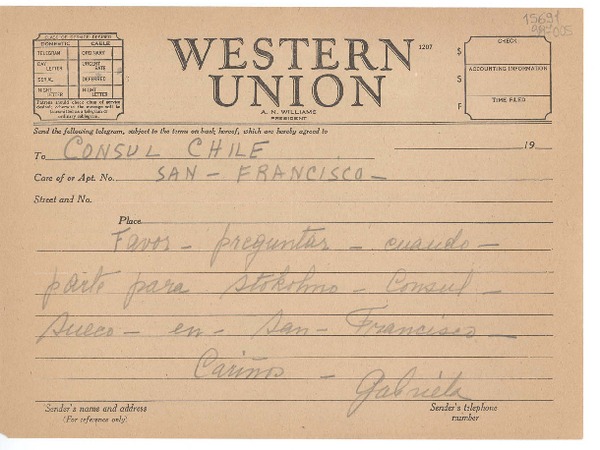 15691
987005
CLASS OF SERVICE DESIRED
DOMESTIC CABLE
TELEGRAM ORDINARY
DAY LETTER URGENT RATE
SERIAL DEFERRED
NIGHT LETTER NIGHT LETTER
Patrons should check class of service
desired; otherwise the message will be
transmitted as a telegram or
ordinary cablegram.
WESTERN
UNION
1207
A. N. WILLIAMS
PRESIDENT
$
$
F
CHECK
ACCOUNTING INFORMATION
TIME FILED
Send the following telegram, subject to the terms on back hereof, which are hereby agreed to
To CONSUL CHILE 19
Care of or Apt. No. SAN - FRANCISCO -
Street and No.
Place
Favor - preguntar - cuando -
parte para Stokolmo - Consul -
Sueco - en - San - Francisco -
Cariños -
Gabriela
Sender's name and address
(For reference only)
Sender's telephone
number